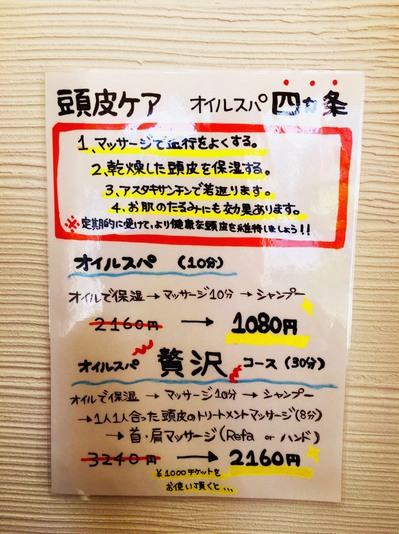 頭皮ケア オイルスパ 四カ条
1、マッサージで血行をよくする。
2、乾燥した頭皮を保湿する。
3、アスタキサンチンで若返ります。
4、お肌のたるみにも効果あります。
※定期的に受けて、より健康な頭皮を維持しましょう!!
オイルスパ (10分)
オイルで保湿→マッサージ10分→シャンプー
2160円→1080円
オイルスパ 贅沢 コース(30分)
オイルで保湿→マッサージ10分→シャンプー
→1人1人合った頭皮のトリートメントマッサージ(8分)
→首・肩マッサージ(Refa or ハンド)
3240円→2160円
¥1000チケットを
お使い頂くと...